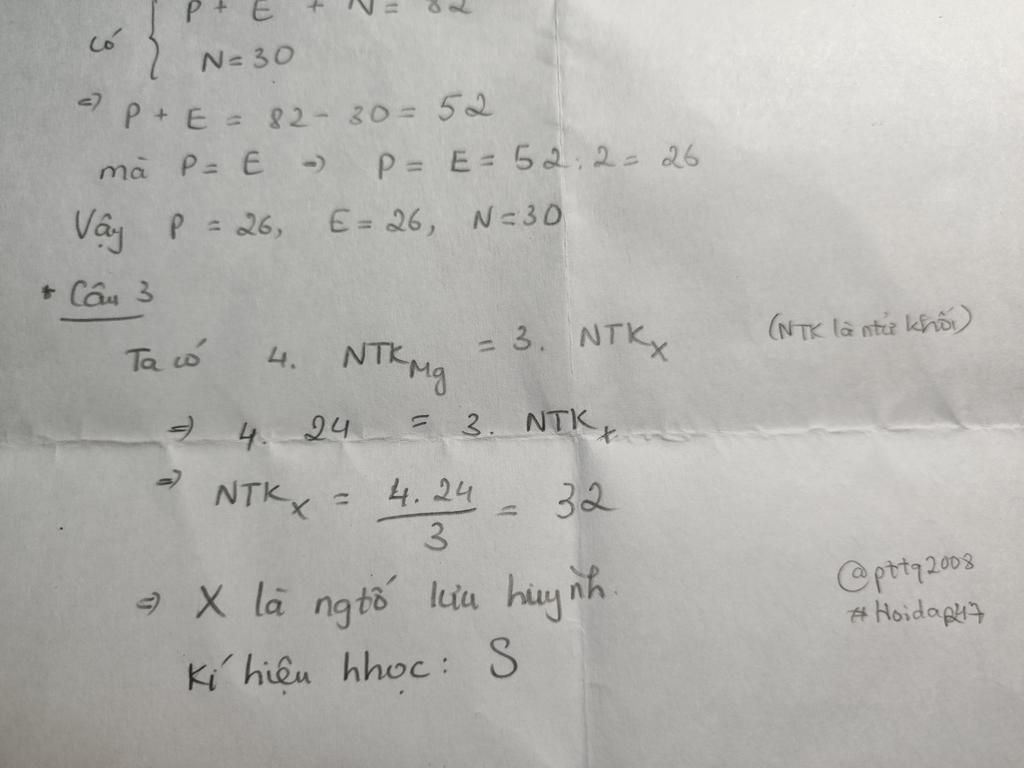 P + E + N = 82
có { N = 30
=> P + E = 82 - 30 = 52
mà P = E => P = E = 52 : 2 = 26
Vậy P = 26, E = 26, N = 30
* Câu 3
Ta có 4. NTK_Mg = 3. NTK_X (NTK là ntử khối)
=> 4. 24 = 3. NTK_x
=> NTK_X = 4. 24 / 3 = 32
=> X là ngtố lưu huỳnh.
Kí hiệu hhọc: S
@pttq2008
#Hoidap247